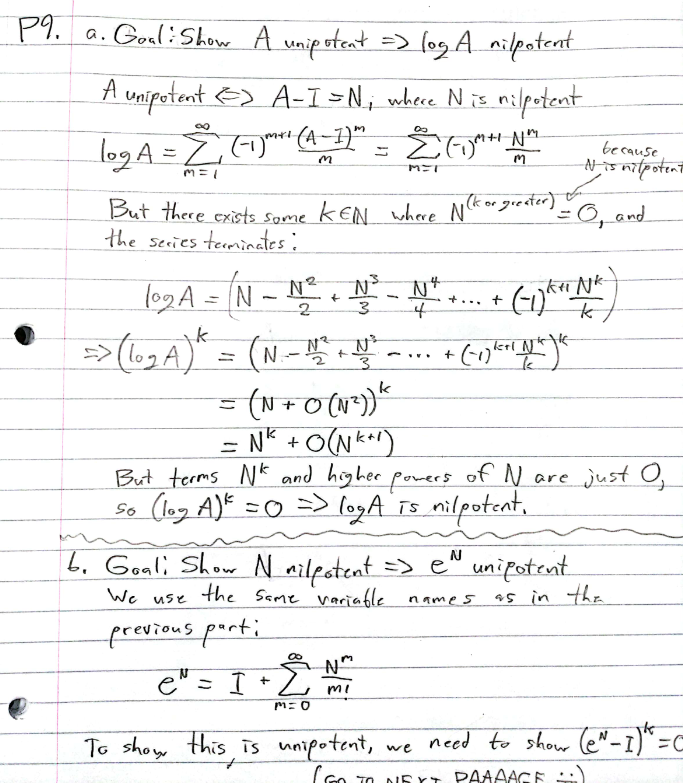 P9. a. Goal: Show A unipotent => log A nilpotent
A unipotent <=> A-I = N, where N is nilpotent
log A = ∑_{m=1}^{∞} (-1)^{m+1} (A-I)^m / m = ∑_{m=1}^{∞} (-1)^{m+1} N^m / m
because
N is nilpotent
But there exists some k∈N where N^{(k or greater)} = 0, and
the series terminates:
log A = (N - N²/2 + N³/3 - N⁴/4 + ... + (-1)^{k+1} N^k/k)
=> (log A)^k = (N - N²/2 + N³/3 - ... + (-1)^{k+1} N^k/k)^k
= (N + O(N²))^k
= N^k + O(N^{k+1})
But terms N^k and higher powers of N are just 0,
so (log A)^k = 0 => log A is nilpotent.
b. Goal: Show N nilpotent => e^N unipotent
We use the same variable names as in the
previous part:
e^N = I + ∑_{m=0}^{∞} N^m / m!
To show this is unipotent, we need to show (e^N - I)^k = 0
(GO TO NEXT PAAAAGE :)